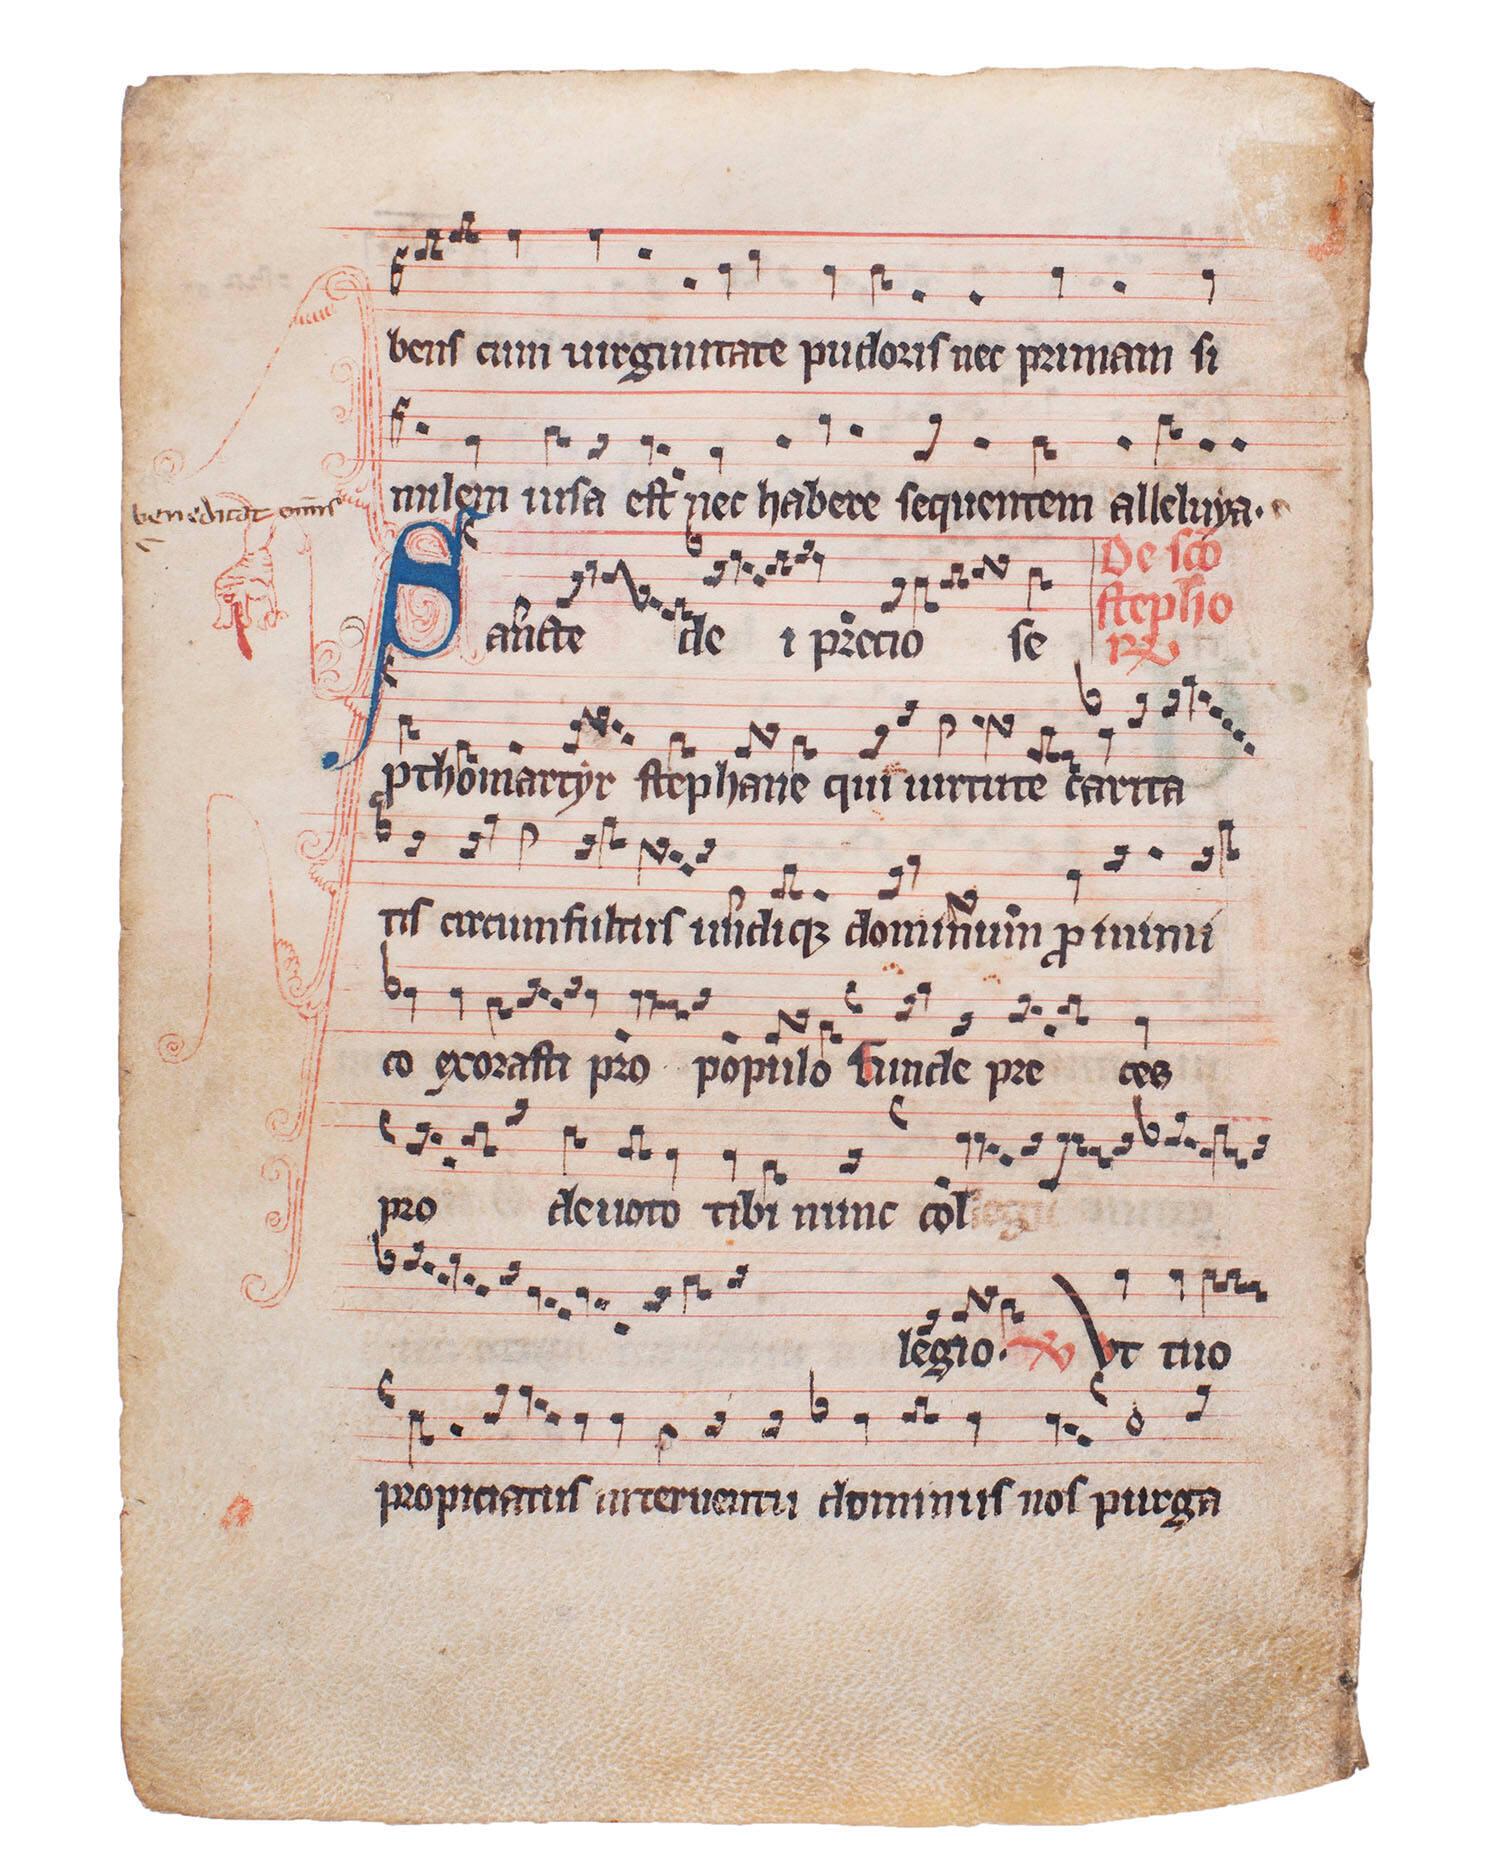 bens cum uirginitate pudoris nec primam si
milem uisa est nec habere sequentem alleluya.
benedicat
Sancte de i precio se
De sco
stepho
rx
pthomartyr stephane qui uirtute carita
tis circumfultus undiqz dominum p inimi
co exorasti pro populo funde pre ces
pro deuoto tibi nunc col
legio. v Vt tuo
propiciatus interuentu dominus nos purga